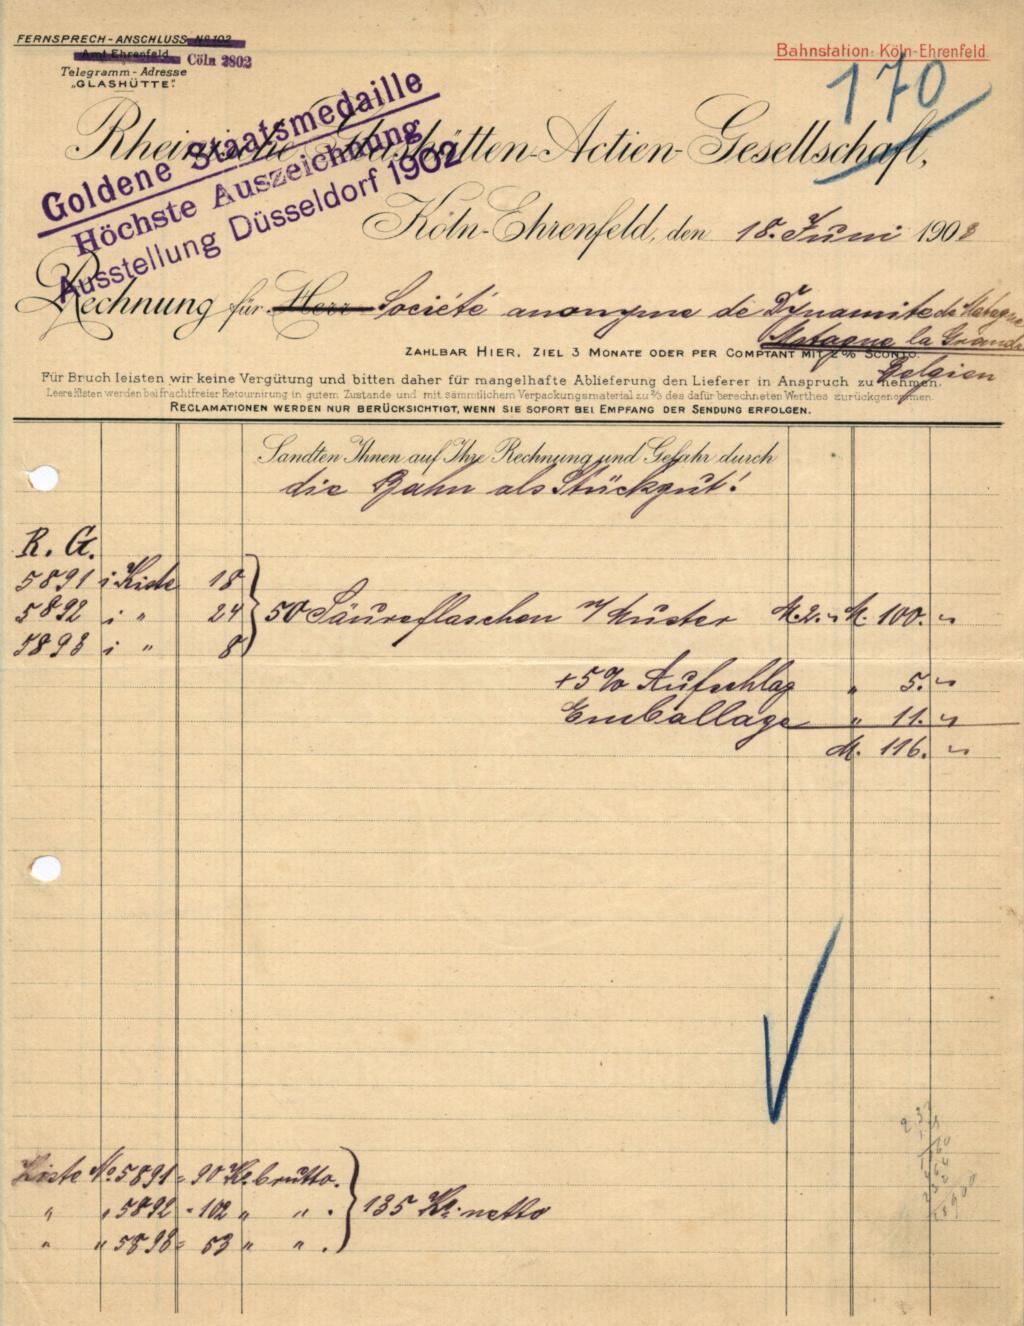 FERNSPRECH-ANSCHLUSS No 102
Amt Ehrenfeld Cöln 2802
Telegramm-Adresse
„GLASHÜTTE".
Bahnstation: Köln-Ehrenfeld
170
Goldene Staatsmedaille
Höchste Auszeichnung
Ausstellung Düsseldorf 1902
Rheinische Glashütten-Actien-Gesellschaft,
Köln-Ehrenfeld, den 18. Juni 1908
Rechnung für Herr Société anonyme de Dynamite de Matagne
Matagne la Grande
Belgien
ZAHLBAR HIER, ZIEL 3 MONATE ODER PER COMPTANT MIT 2% SCONTO.
Für Bruch leisten wir keine Vergütung und bitten daher für mangelhafte Ablieferung den Lieferer in Anspruch zu nehmen.
Leere Kisten werden bei frachtfreier Retournirung in gutem Zustande und mit sämmtlichem Verpackungsmaterial zu ⅔ des dafür berechneten Werthes zurückgenommen.
RECLAMATIONEN WERDEN NUR BERÜCKSICHTIGT, WENN SIE SOFORT BEI EMPFANG DER SENDUNG ERFOLGEN.
Sandten Ihnen auf Ihre Rechnung und Gefahr durch
die Bahn als Stückgut!
R. G.
5891 i Kiste 18
5892 i " 24 } 50 Säureflaschen n/ Muster M. 2.- M. 100. -
5893 i " 8
+5% Aufschlag " 5. -
Emballage " 11. -
M. 116. -
Kiste No 5891 = 90 Ko. brutto.
" " 5892 = 102 " " . } 135 Ko. netto
" " 5893 = 53 " " .